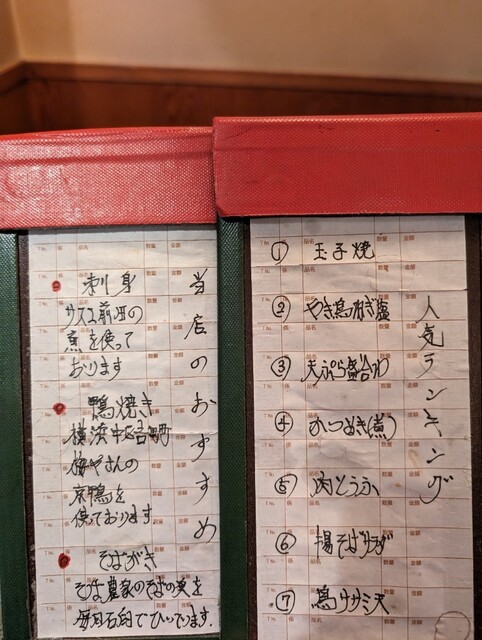 当店のおすすめ
刺身
魚を使って
おります
鴨焼き
梅やさんの
京鴨を
使っております
そばがき
そば農家のそばの実を
毎日石臼でひいています。
人気ランキング
① 玉子焼
② やき鳥ねぎ塩
③ 天ぷら盛合わ
④ かつぬき(煮)
⑤ 肉とうふ
⑥ 揚そばサラダ
⑦ 鳥ササミ天